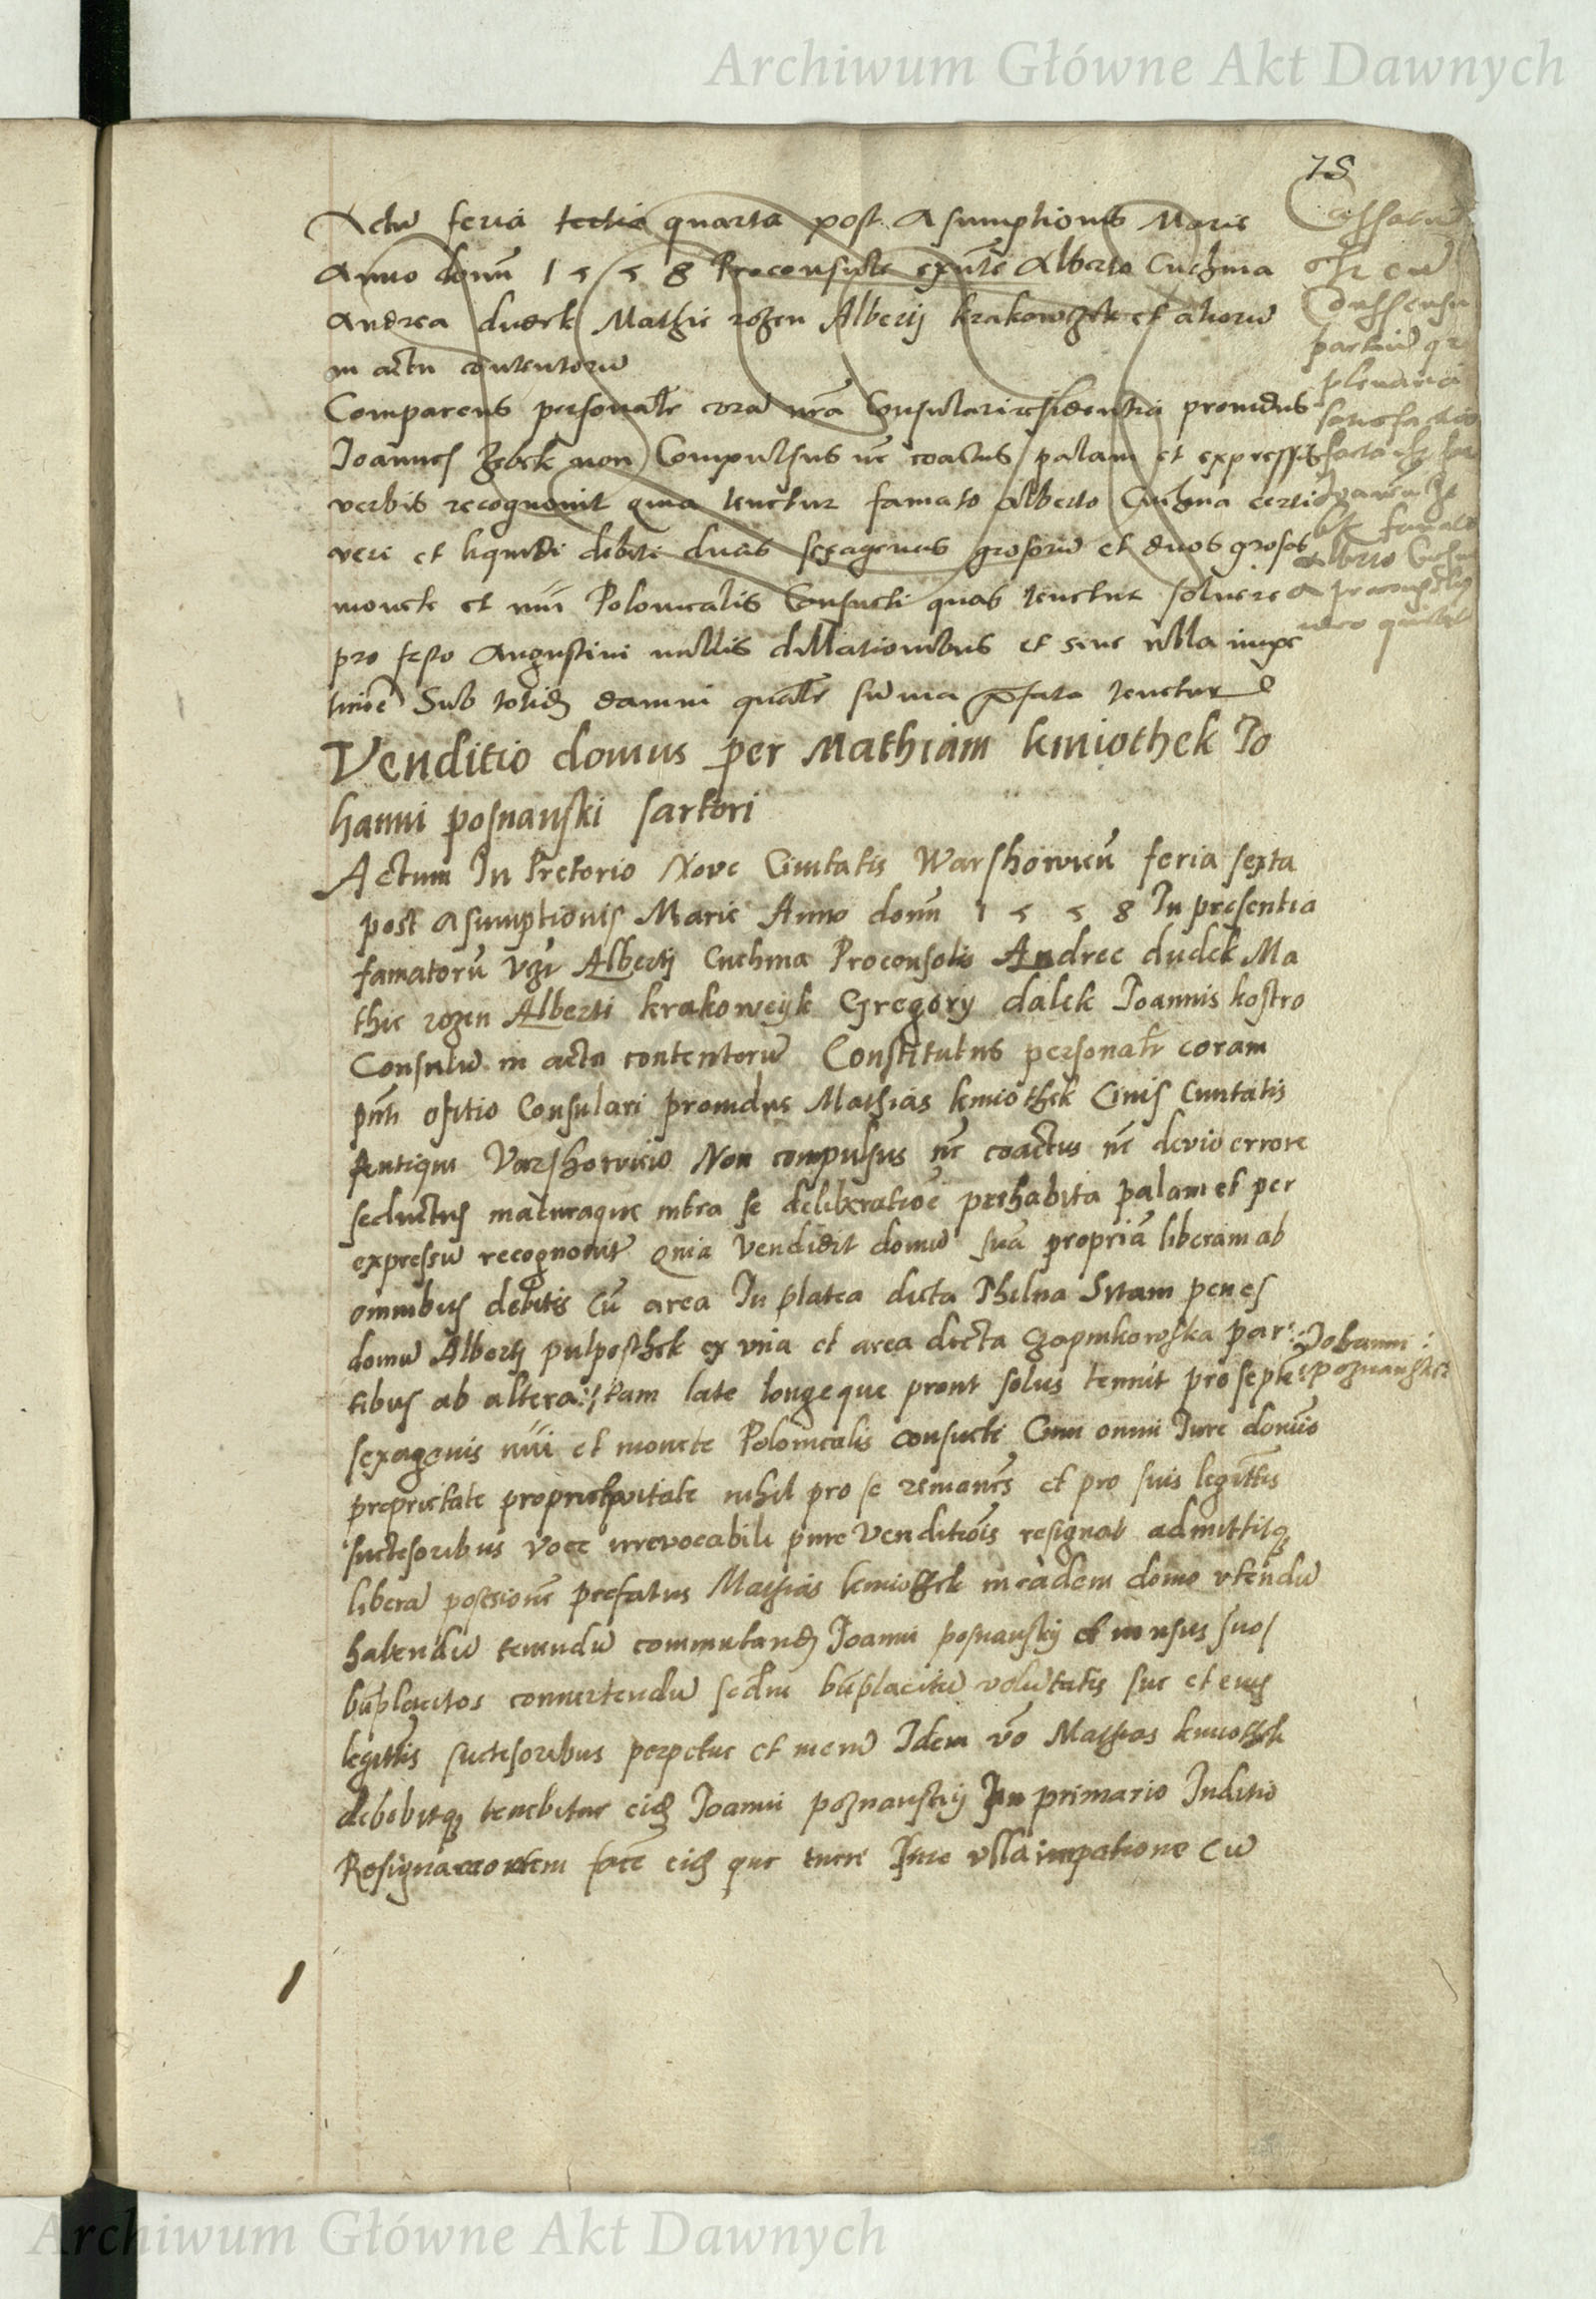 Archiwum Główne Akt Dawnych
78
Actu feria tertia quarta post Asumptionis Marie
Anno domi 1558 Proconsule exnte Alberto Cuchma
Andrea dudek Mathie rozen Albertj krakowczik et alioru
in actu contentoru
Comparens personalr cora nra Consulari residentia prouidus
Joannes non Compulsus nec coactus palam et expressis
verbis recognouit quia tenetur famato Alberto Cuchma certi
veri et liquidi debiti duas sexagenas grosoru et duos grosos
monete et nui Polonicalis Consueti quas tenetur soluere
pro festo Augustini nullis dillationibus et sine ulla impe
Sub totidz damni qualr suma pfata tenetur
Cassatu
est cu
Consensu
partiu qr
plenaria
satisfactio
facta est
famato
Alberto Cuchma
a proconsule
quietat
Venditio domus per Mathiam kmiothek Jo
hanni posnanski sartori
Actum In Pretorio Nove Ciuitatis Warshowien feria sexta
post Asumptionis Marie Anno domi 1558 In presentia
famatoru vgr Albertj Cuchma Proconsolis Andree dudek Ma
thie rozen Alberti krakowcijk Gregory dalek Joannis kostro
Consulu in actu contentoru Constitutus personalr coram
pnti ofitio Consulari prouidus Mathias kmiothek Ciuis Ciuitatis
Antiqui Varshowien Non compulsus nec coactus nec devio errore
seductus maturaque intra se deliberatioe prehabita palam et per
expressu recognouit Quia vendidit domu sua propria liberam ab
omnibus debitis cu area In platea dicta Thilna Sitam penes
domu Albertj pulpesthek ex vna et area dicta Czopnikowska par
tibus ab altera tam late longeque pront solus tenuit pro septe
:Johanni:
:poznanskj
sexagenis nui et monete Polonicalis consueti Cum omni Jure domio
proprietate nihil pro se remanes et pro suis legittis
suctesoribus voce irrevocabili pure venditiois resignat admittitqz
libera posesione prefatus Mathias kmiothek in eadem domo vtendu
habendu tenendu commutandz Joanni posnanskij et in usus suos
buplacitos conuertendu sedm buplacitu volutatis sue et eius
legittis suctesoribus perpetue et in euu Idem vo Mathias kmiothek
debebitqz tenebitur eidz Joanni poznanskij In primario Juditio
Resignationem face eidz que tueri sine vlla inpatione Cu
Archiwum Główne Akt Dawnych